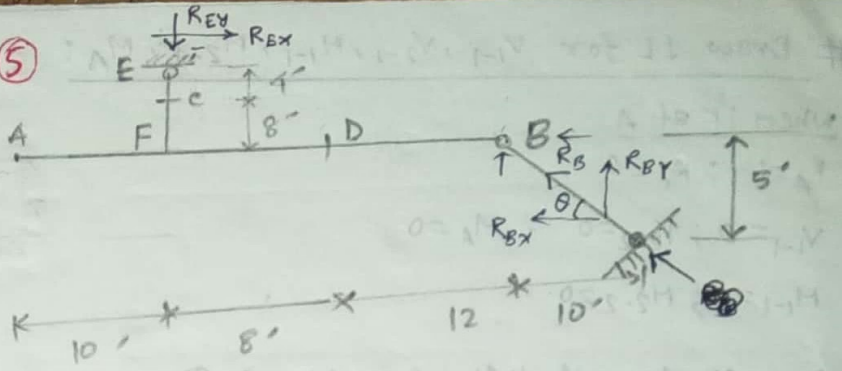 ⑤
R_EY
R_EX
E
4'
C
8'
A
F
D
B
R_B
R_BY
5'
θ
R_BX
10'
8'
12
10'